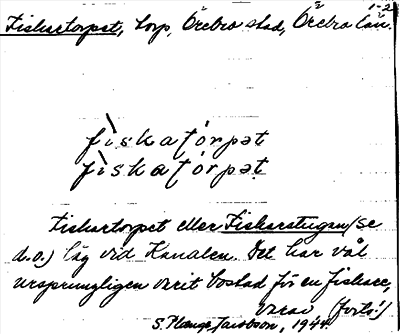 1-2
Fiskartorpet, torp, Örebro stad, Örebro län.
fìskatórpət
fìskatórpət
Fiskartorpet eller Fiskarstugan (se
d.o.) låg vid Kanalen. Det har väl
ursprungligen varit bostad för en fiskare,
varav (forts!)
S. Jacobson, 1944.